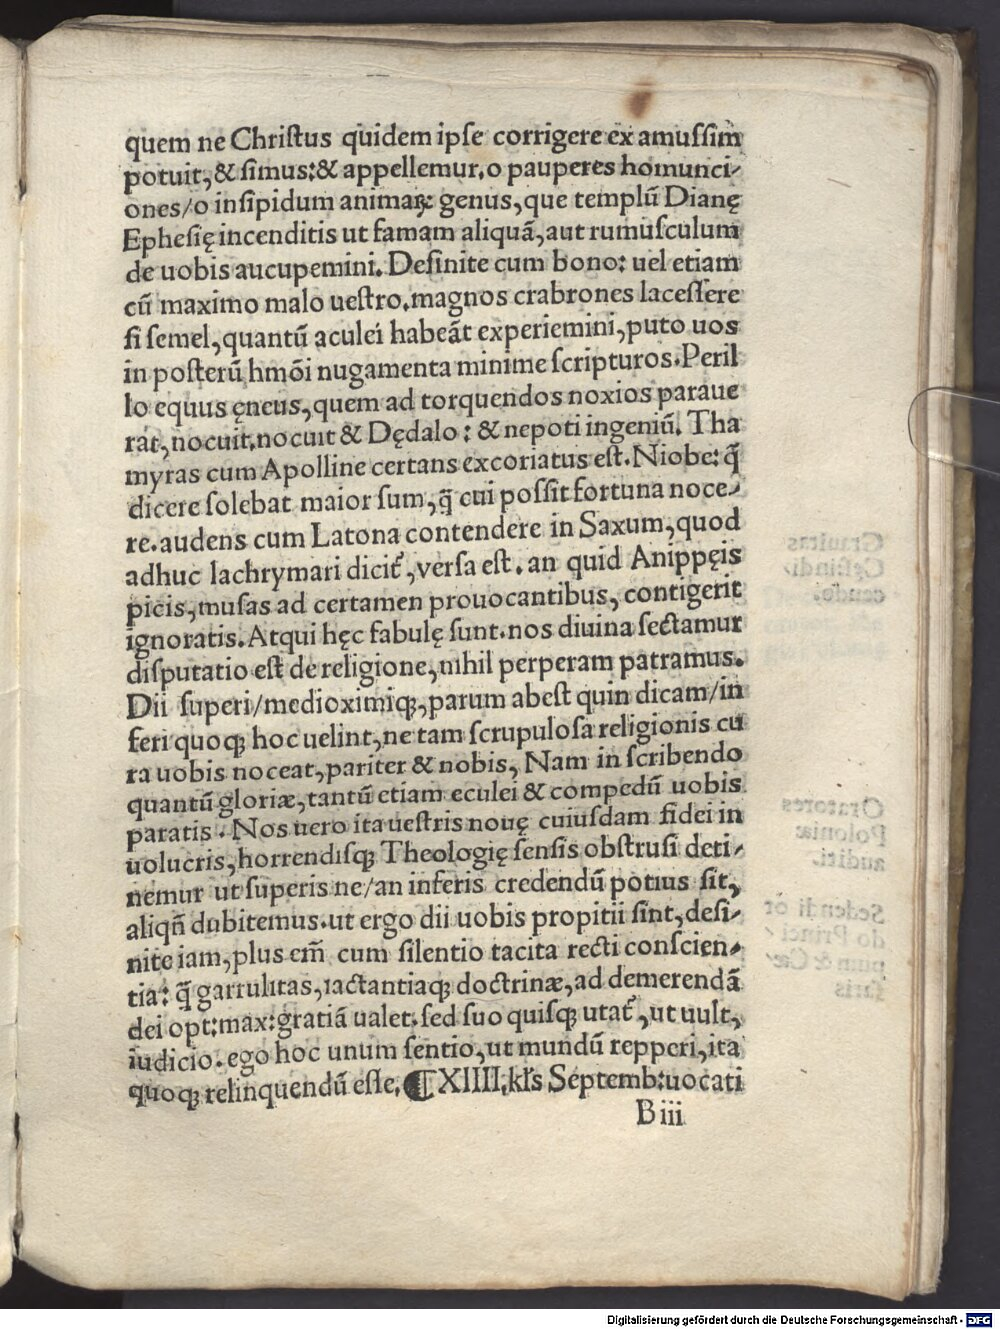 quem ne Christus quidem ipse corrigere ex amussim
potuit, & simus: & appellemur, o pauperes homunci-
ones/o insipidum animaꝝ genus, que templū Dianę
Ephesię incenditis ut famam aliquā, aut rumusculum
de uobis aucupemini. Desinite cum bono: uel etiam
cū maximo malo uestro, magnos crabrones lacessere
si semel, quantū aculei habeāt experiemini, puto uos
in posterū hmōi nugamenta minime scripturos. Peril
lo equus ęneus, quem ad torquendos noxios paraue
rat, nocuit. nocuit & Dędalo: & nepoti ingeniū. Tha
myras cum Apolline certans excoriatus est. Niobe: q̄
dicere solebat maior sum, q̄ cui possit fortuna noce-
re. audens cum Latona contendere in Saxum, quod
adhuc lachrymari dicit᷑, versa est. an quid Anippęis
picis, musas ad certamen prouocantibus, contigerit
ignoratis. Atqui hęc fabulę sunt. nos diuina sectamur
disputatio est de religione, nihil perperam patramus.
Dii superi/medioximiqꝫ, parum abest quin dicam/in
feri quoqꝫ hoc uelint, ne tam scrupulosa religionis cu
ra uobis noceat, pariter & nobis, Nam in scribendo
quantū gloriæ, tantū etiam eculei & compedū uobis
paratis. Nos uero ita uestris nouę cuiusdam fidei in
uolucris, horrendisqꝫ Theologię sensis obstrusi deti-
nemur ut superis ne/an inferis credendū potius sit,
aliqn̄ dubitemus. ut ergo dii uobis propitii sint, desi-
nite iam, plus em̄ cum silentio tacita recti conscien-
tia: q̄ garrulitas, iactantiaqꝫ doctrinæ, ad demerendā
dei opt: max: gratiā ualet. sed suo quisqꝫ utat᷑, ut uult,
iudicio. ego hoc unum sentio, ut mundū repperi, ita
quoqꝫ relinquendū esse. ¶ XIIII. kl's Septemb: uocati
B iii
Digitalisierung gefördert durch die Deutsche Forschungsgemeinschaft - DFG